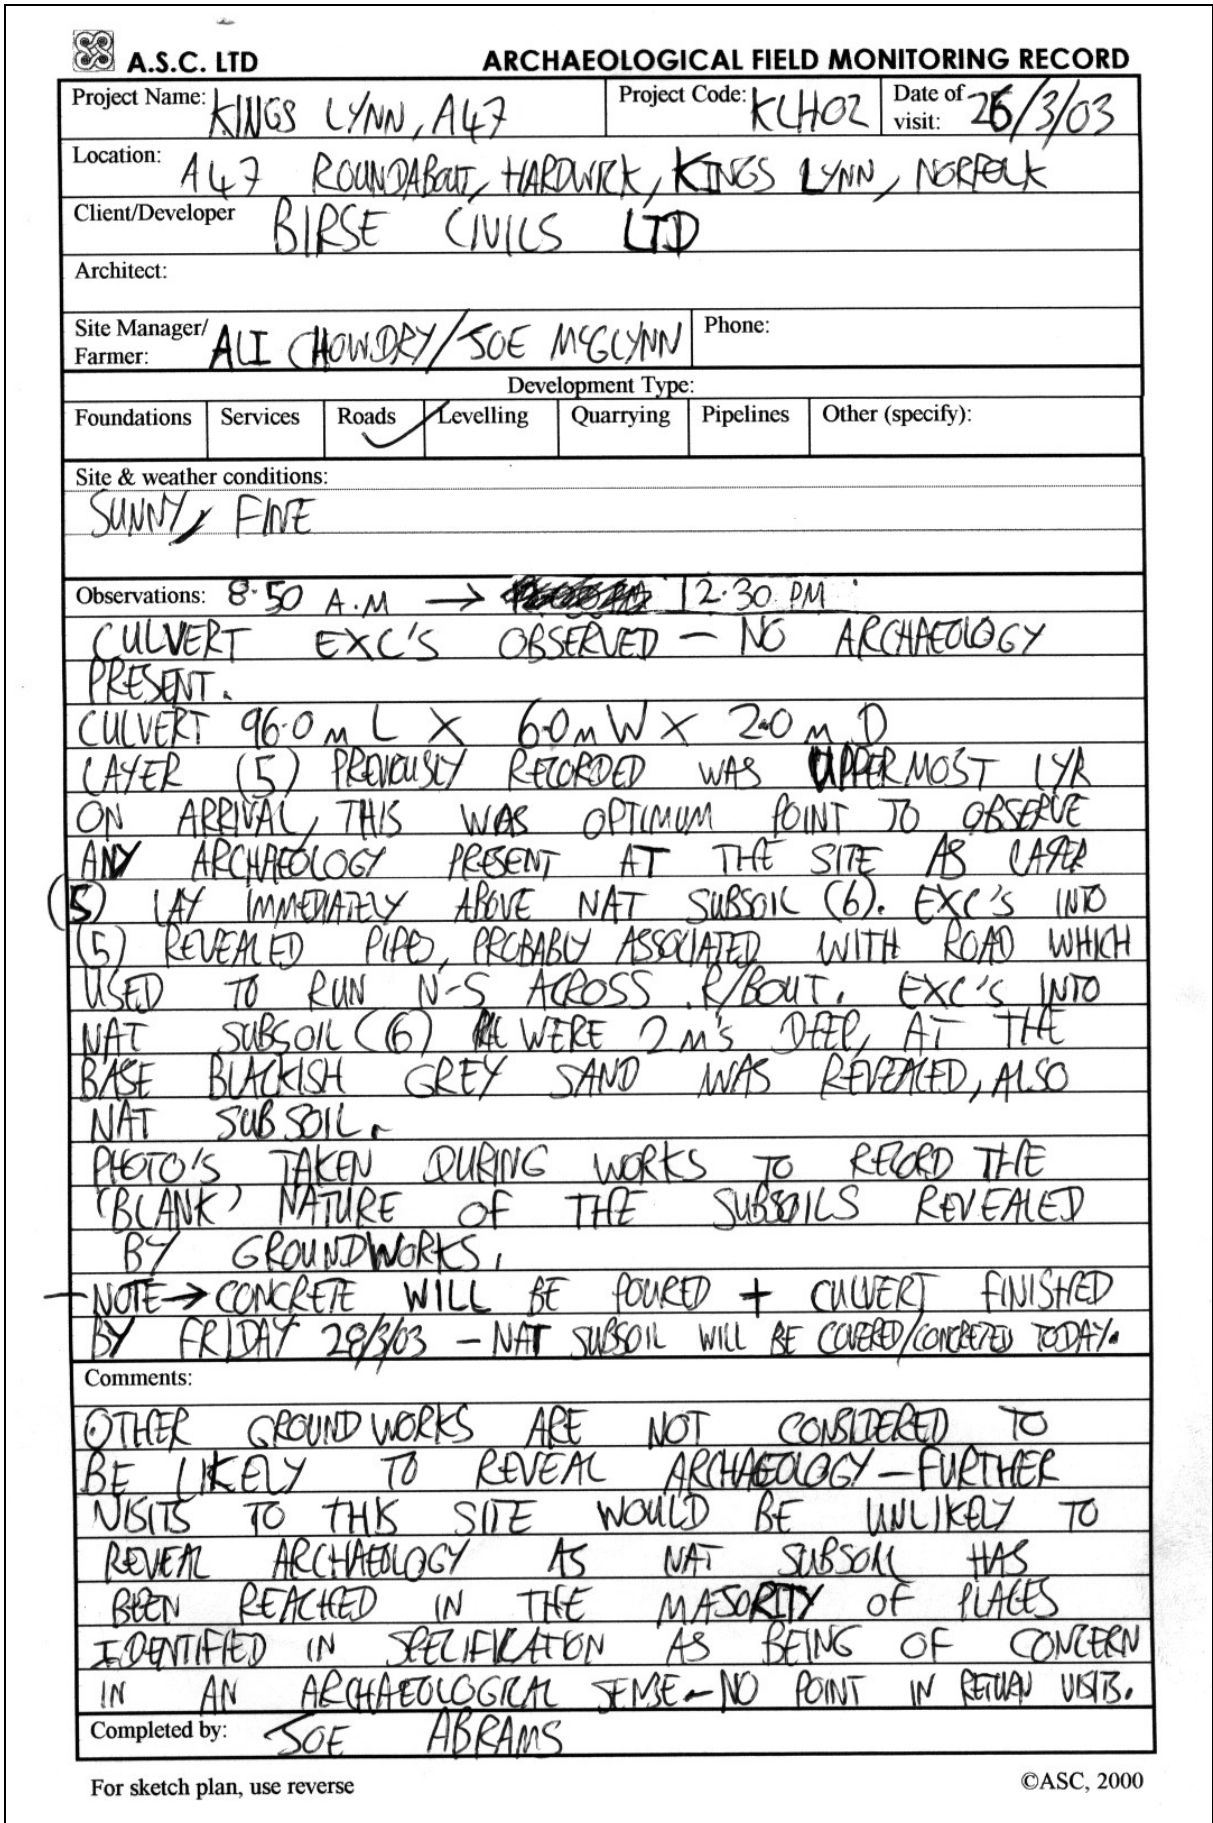 A.S.C. LTD ARCHAEOLOGICAL FIELD MONITORING RECORD
Project Name: KINGS LYNN, A47 Project Code: KLH02 Date of visit: 26/3/03
Location: A47 ROUNDABOUT, HARDWICK, KINGS LYNN, NORFOLK
Client/Developer BIRSE CIVILS LTD
Architect:
Site Manager/ Farmer: ALI CHOWDRY/JOE McGLYNN Phone:
Development Type:
Foundations Services Roads Levelling Quarrying Pipelines Other (specify):
Site & weather conditions:
SUNNY, FINE
Observations: 8.50 A.M → 12.30 PM
CULVERT EXC'S OBSERVED – NO ARCHAEOLOGY
PRESENT.
CULVERT 96.0m L X 6.0m W X 2.0m D
LAYER (5) PREVIOUSLY RECORDED WAS UPPERMOST LYR
ON ARRIVAL, THIS WAS OPTIMUM POINT TO OBSERVE
ANY ARCHAEOLOGY PRESENT AT THE SITE AS LAYER
(5) LAY IMMEDIATELY ABOVE NAT SUBSOIL (6). EXC'S INTO
(5) REVEALED PIPE, PROBABLY ASSOCIATED WITH ROAD WHICH
USED TO RUN N-S ACROSS R/BOUT. EXC'S INTO
NAT SUBSOIL (6) WERE 2M'S DEEP, AT THE
BASE BLACKISH GREY SAND WAS REVEALED, ALSO
NAT SUBSOIL.
PHOTO'S TAKEN DURING WORKS TO RECORD THE
'BLANK' NATURE OF THE SUBSOILS REVEALED
BY GROUNDWORKS.
– NOTE → CONCRETE WILL BE POURED + CULVERT FINISHED
BY FRIDAY 28/3/03 – NAT SUBSOIL WILL BE COVERED/CONCRETED TODAY.
Comments:
OTHER GROUNDWORKS ARE NOT CONSIDERED TO
BE LIKELY TO REVEAL ARCHAEOLOGY – FURTHER
VISITS TO THIS SITE WOULD BE UNLIKELY TO
REVEAL ARCHAEOLOGY AS NAT SUBSOIL HAS
BEEN REACHED IN THE MAJORITY OF PLACES
IDENTIFIED IN SPECIFICATION AS BEING OF CONCERN
IN AN ARCHAEOLOGICAL SENSE – NO POINT IN RETURN VISITS.
Completed by: JOE ABRAMS
For sketch plan, use reverse ©ASC, 2000